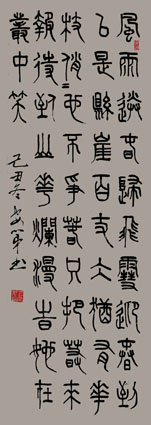 風雨送春歸飛雪迎春到
已是縣崖百丈冰猶有華
枝俏=也不爭春只把春來
報待到山華爛漫時她在
叢中笑
己丑冬